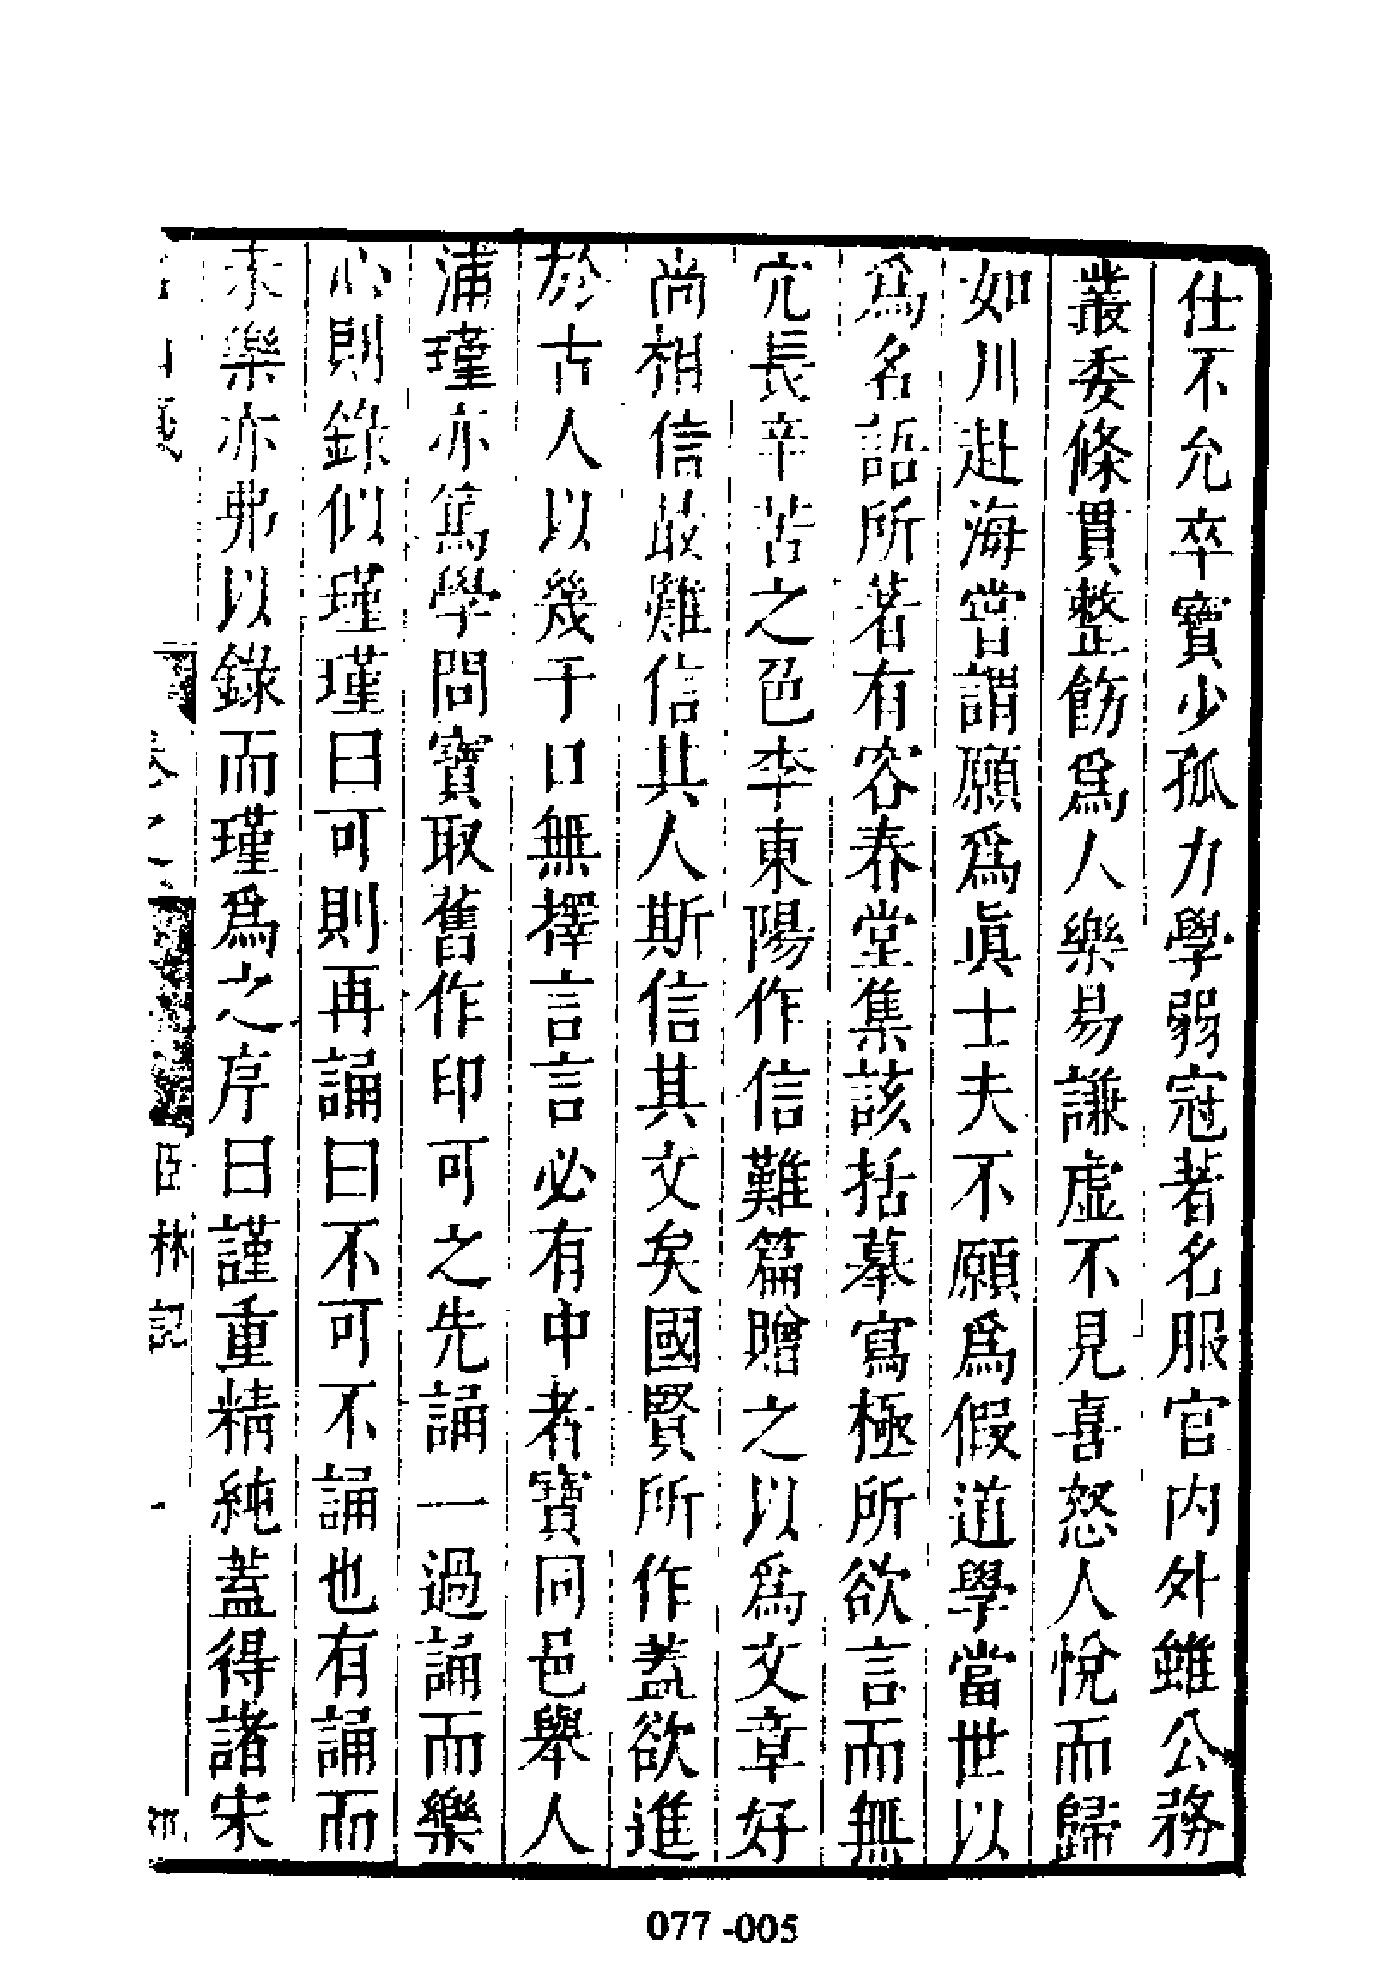 仕不允卒寳少孤力學弱冠著名服官内外雖公務
叢委條貫整飭爲人樂易謙虚不見喜怒人悅而歸
如川赴海嘗謂願爲眞士夫不願爲假道學當世以
爲名語所著有容春堂集該括摹寫極所欲言而無
宂長辛苦之色李東陽作信難篇贈之以爲文章好
尚相信最難信其人斯信其文矣國賢所作蓋欲進
於古人以幾于口無擇言言必有中者寳同邑舉人
浦瑾亦篤學問寳取舊作印可之先誦一過誦而樂
心則錄似瑾瑾曰可則再誦曰不可不誦也有誦而
未樂亦弗以錄而瑾爲之序曰謹重精純蓋得諸宋
臣林記
077-005